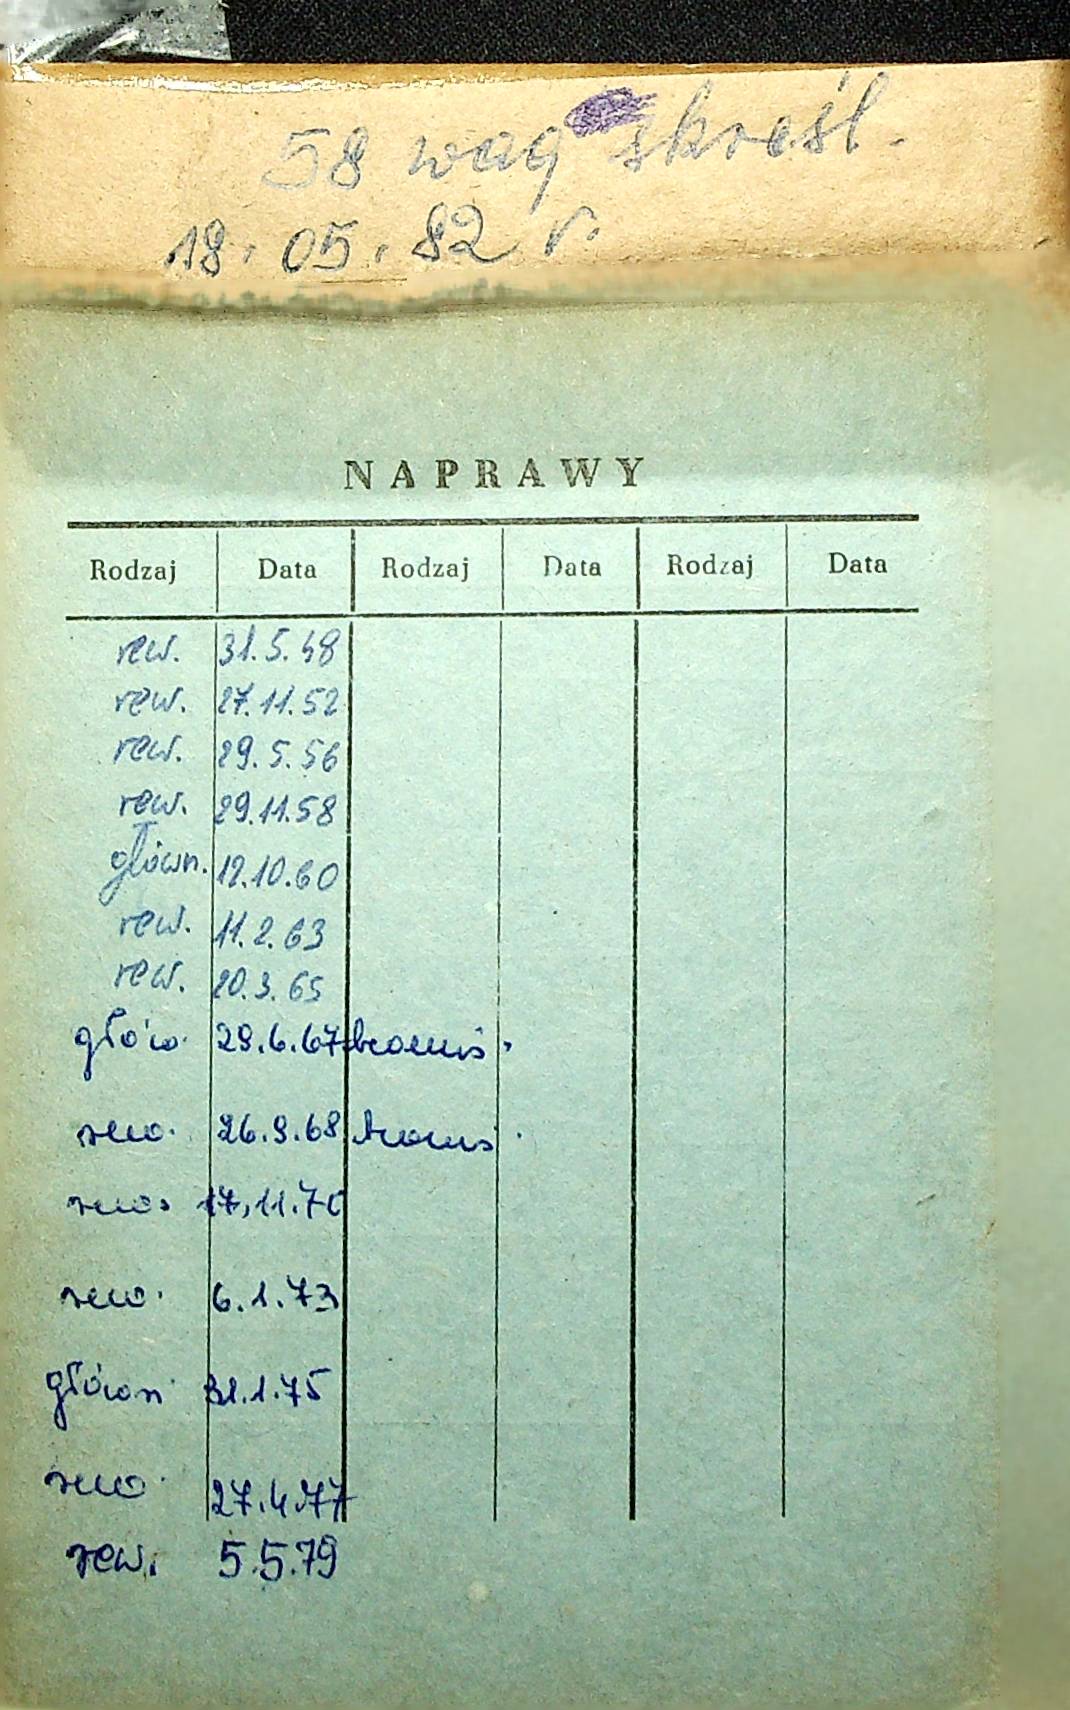 58 wag skreśl.
18. 05. 82 r.
NAPRAWY
Rodzaj Data Rodzaj Data Rodzaj Data
rew. 31.5.48
rew. 27.11.52
rew. 29.5.56
rew. 29.11.58
główn. 12.10.60
rew. 11.2.63
rew. 20.3.65
głów. 29.6.67
rew. 26.9.68
rew. 17.11.70
rew. 6.1.73
główn. 31.1.75
rew. 27.4.77
rew. 5.5.79